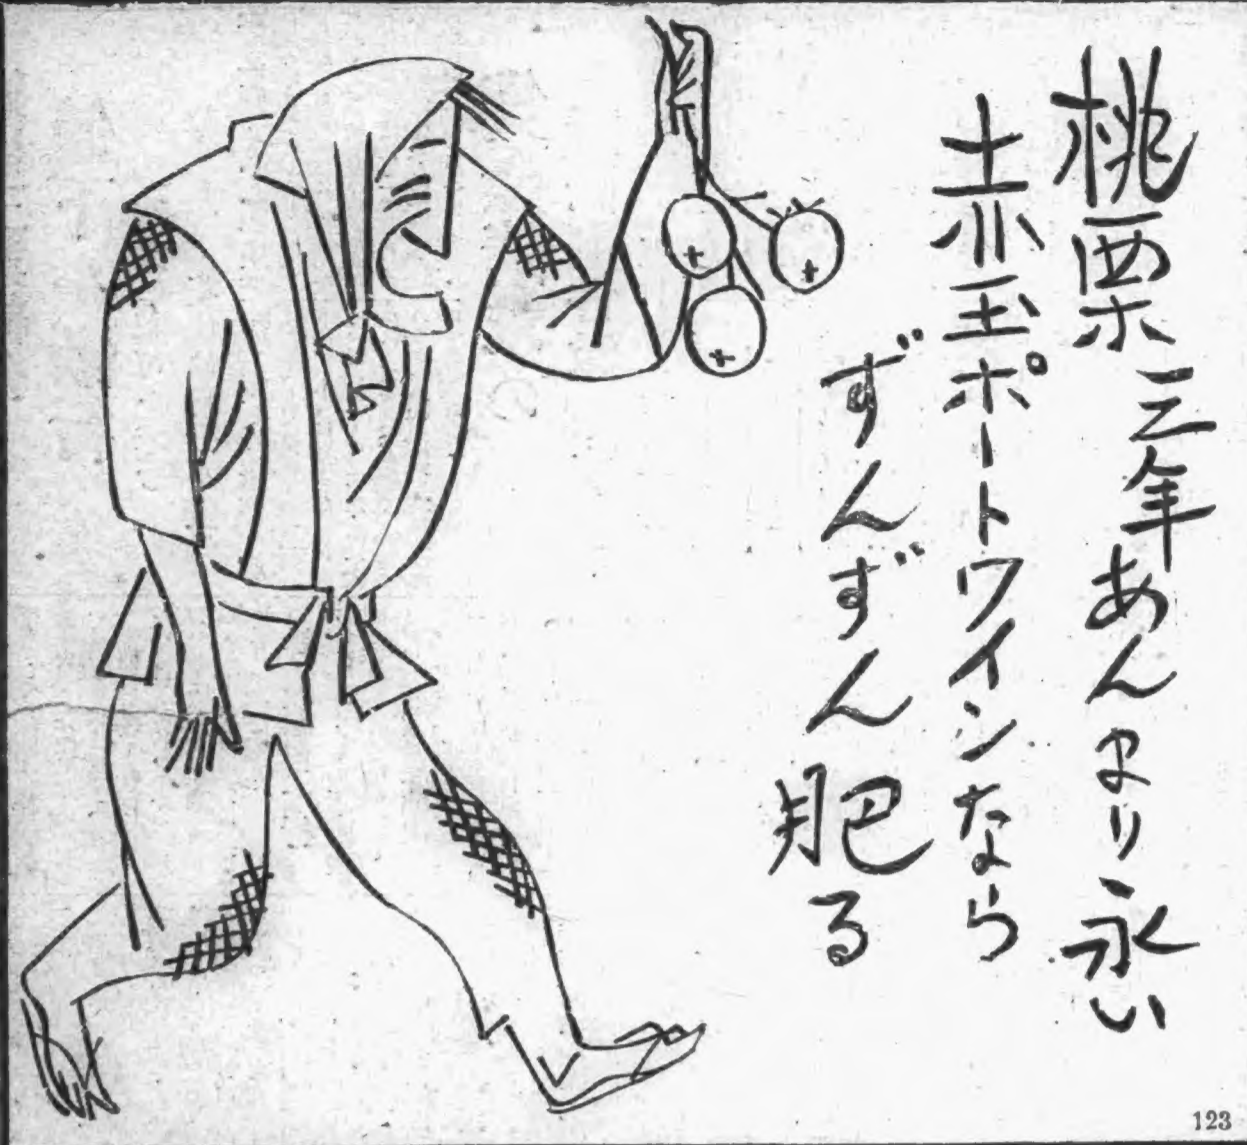 桃栗三年あんまり永い
赤玉ポートワインなら
ずんずん肥る
123